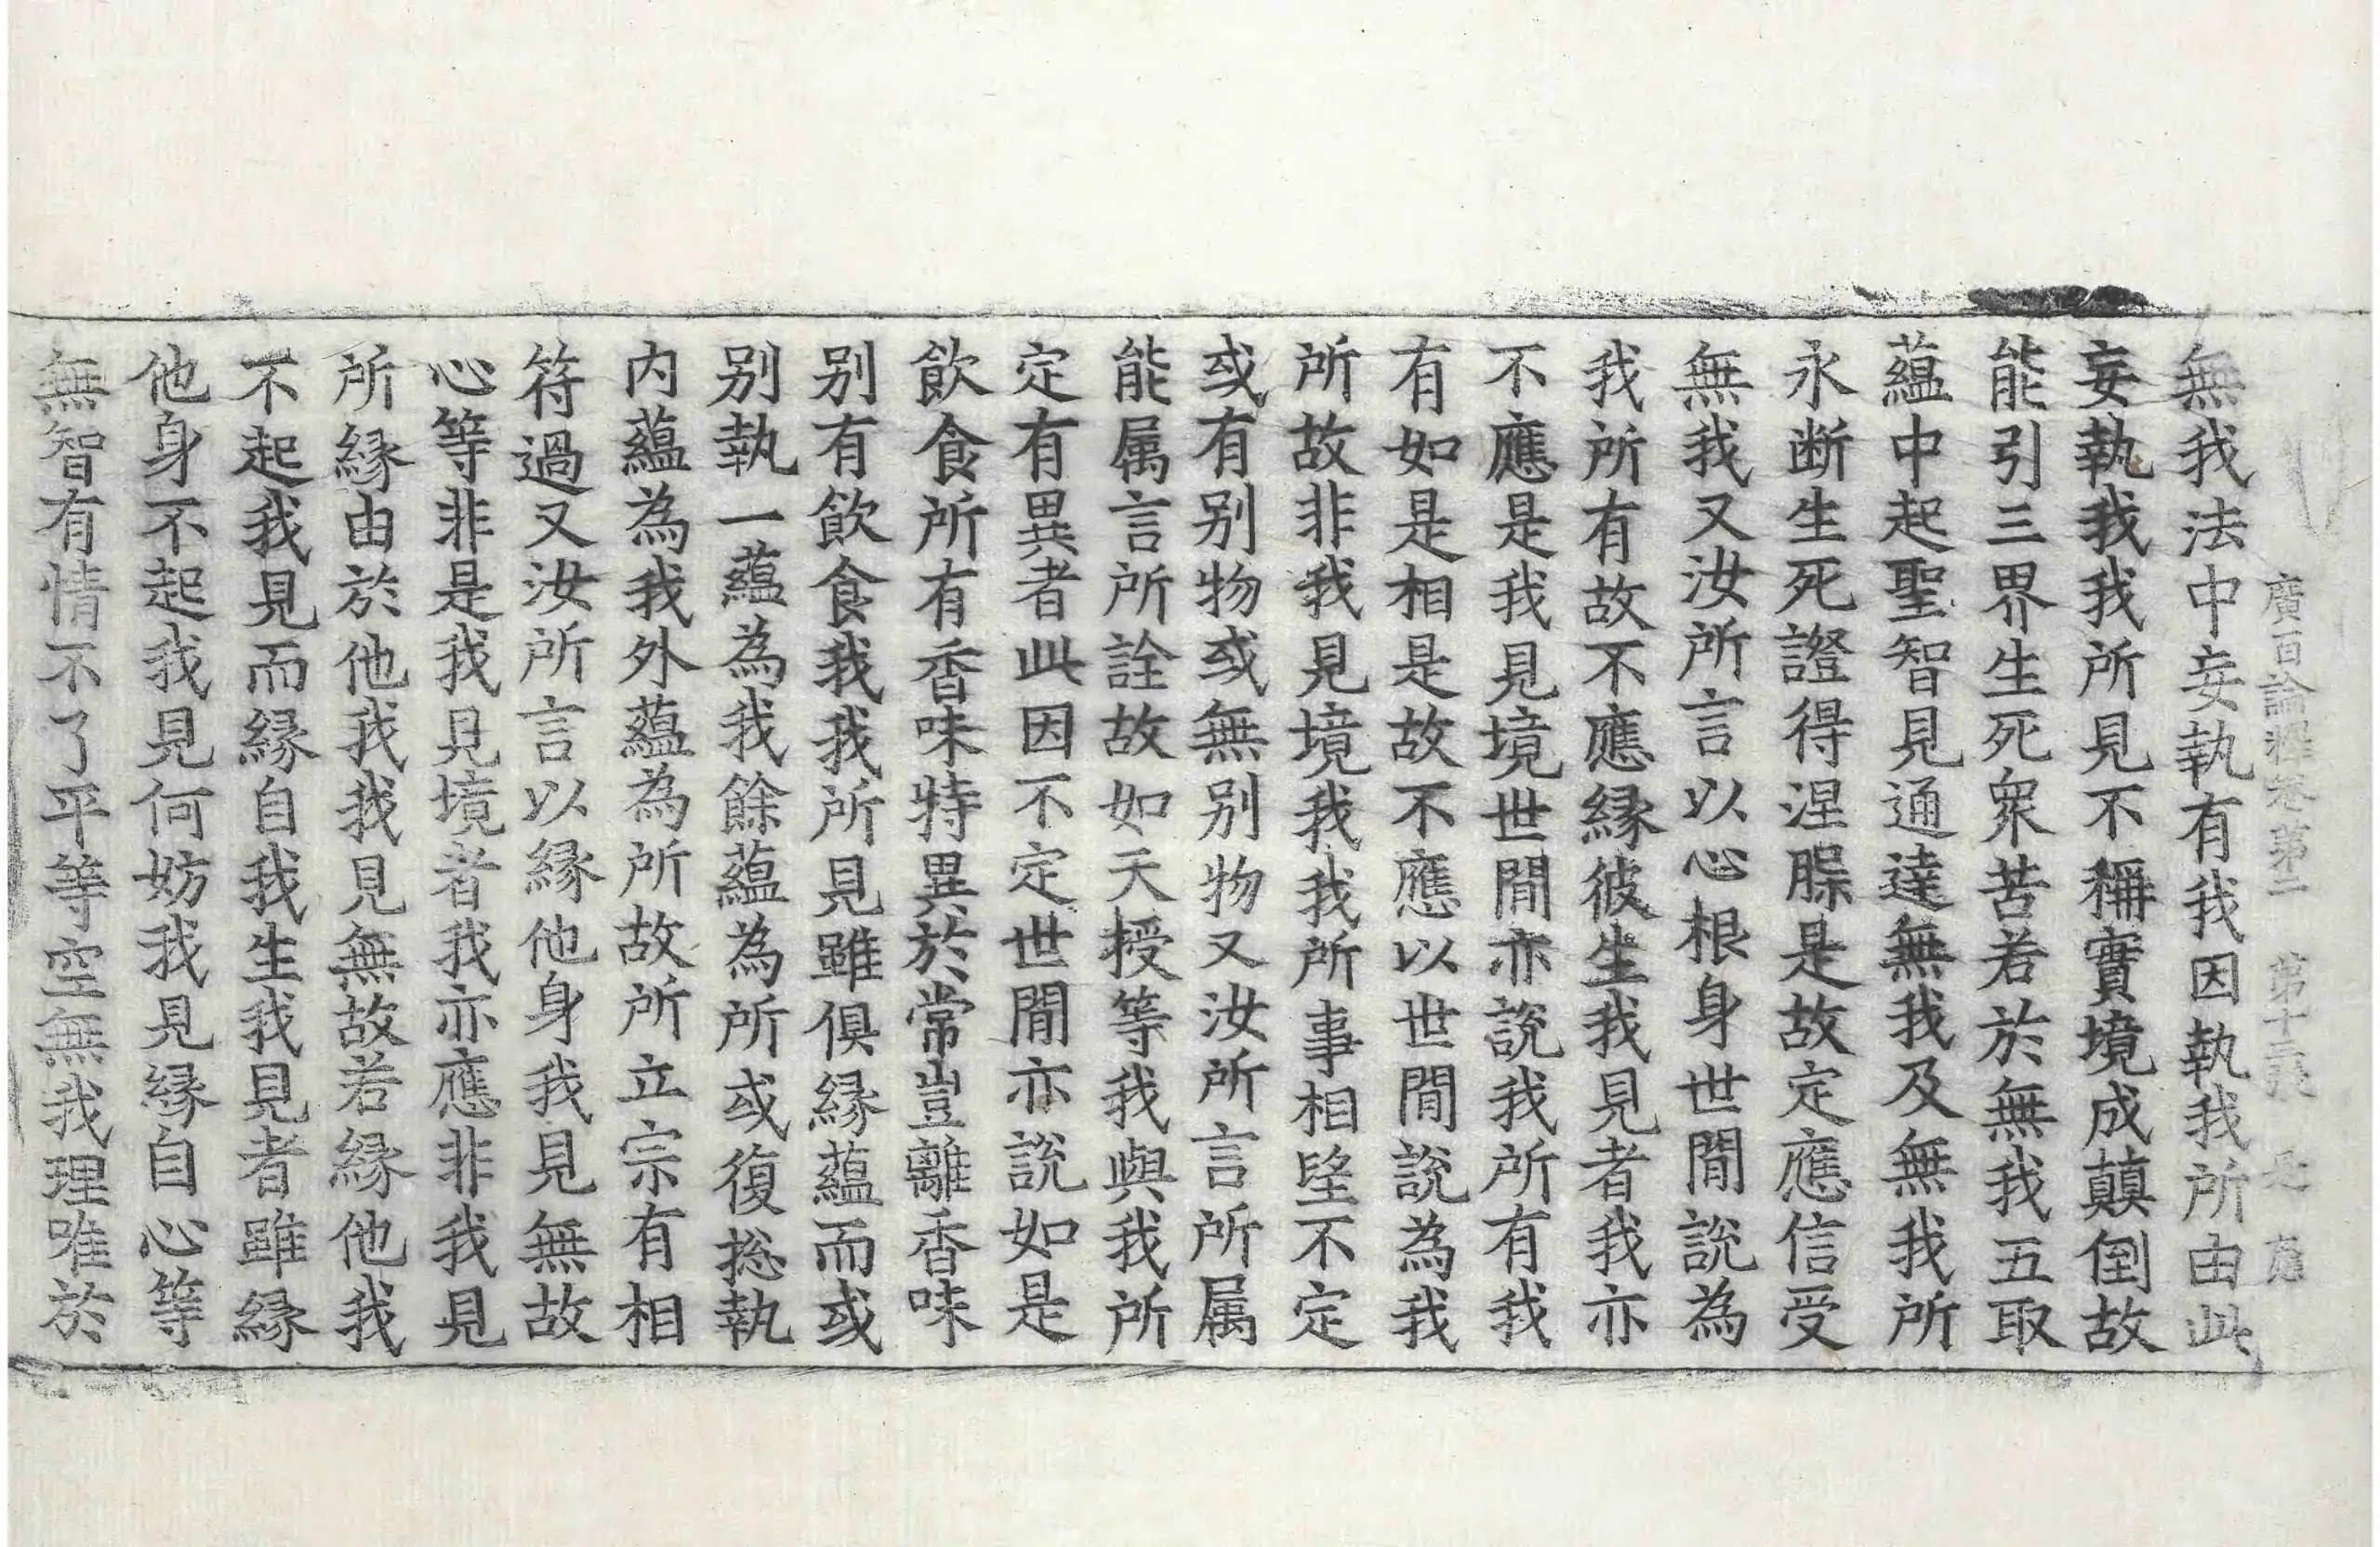 廣百論釋卷第二 第十三張 是 應
無我法中妄執有我因執我所由此
妄執我我所見不稱實境成顛倒故
能引三界生死衆苦若於無我五取
蘊中起聖智見通達無我及無我所
永断生死證得涅槃是故定應信受
無我又汝所言以心根身世間說為
我所有故不應緣彼生我見者我亦
不應是我見境世間亦說我所有我
有如是相是故不應以世間說為我
所故非我見境我我所事相望不定
或有别物或無别物又汝所言所属
能属言所詮故如天授等我與我所
定有異者此因不定世間亦說如是
飲食所有香味特異於常豈離香味
别有飲食我我所見雖俱緣蘊而或
别執一蘊為我餘蘊為所或復捴執
内蘊為我外蘊為所故所立宗有相
符過又汝所言以緣他身我見無故
心等非是我見境者我亦應非我見
所緣由於他我我見無故若緣他我
不起我見而緣自我生我見者雖緣
他身不起我見何妨我見緣自心等
無智有情不了平等空無我理唯於